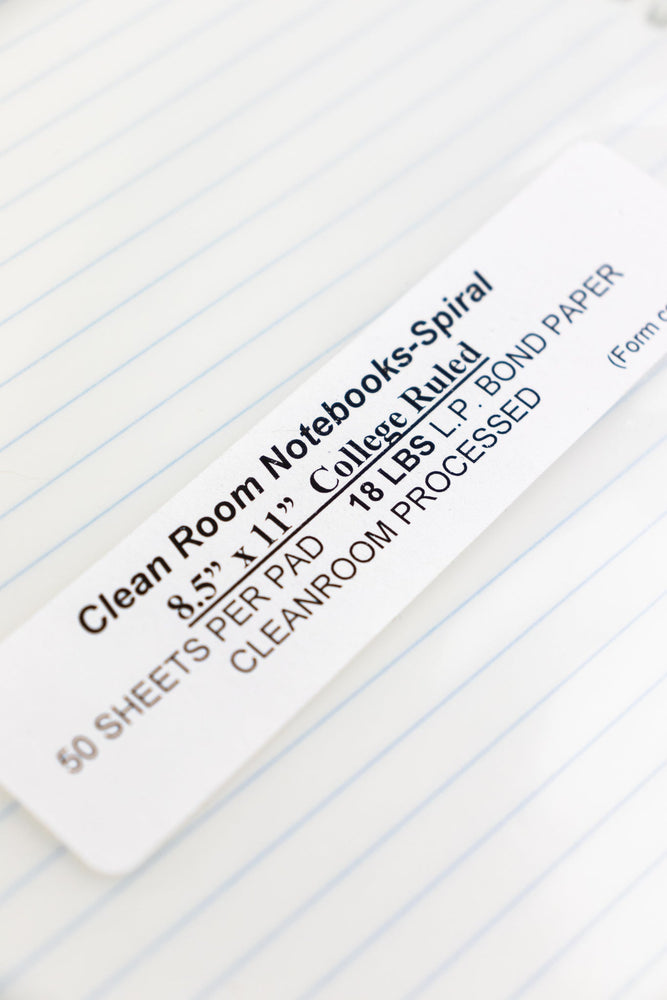 Clean Room Notebooks-Spiral
8.5” x 11” College Ruled
50 SHEETS PER PAD 18 LBS L.P. BOND PAPER
CLEANROOM PROCESSED
(Form